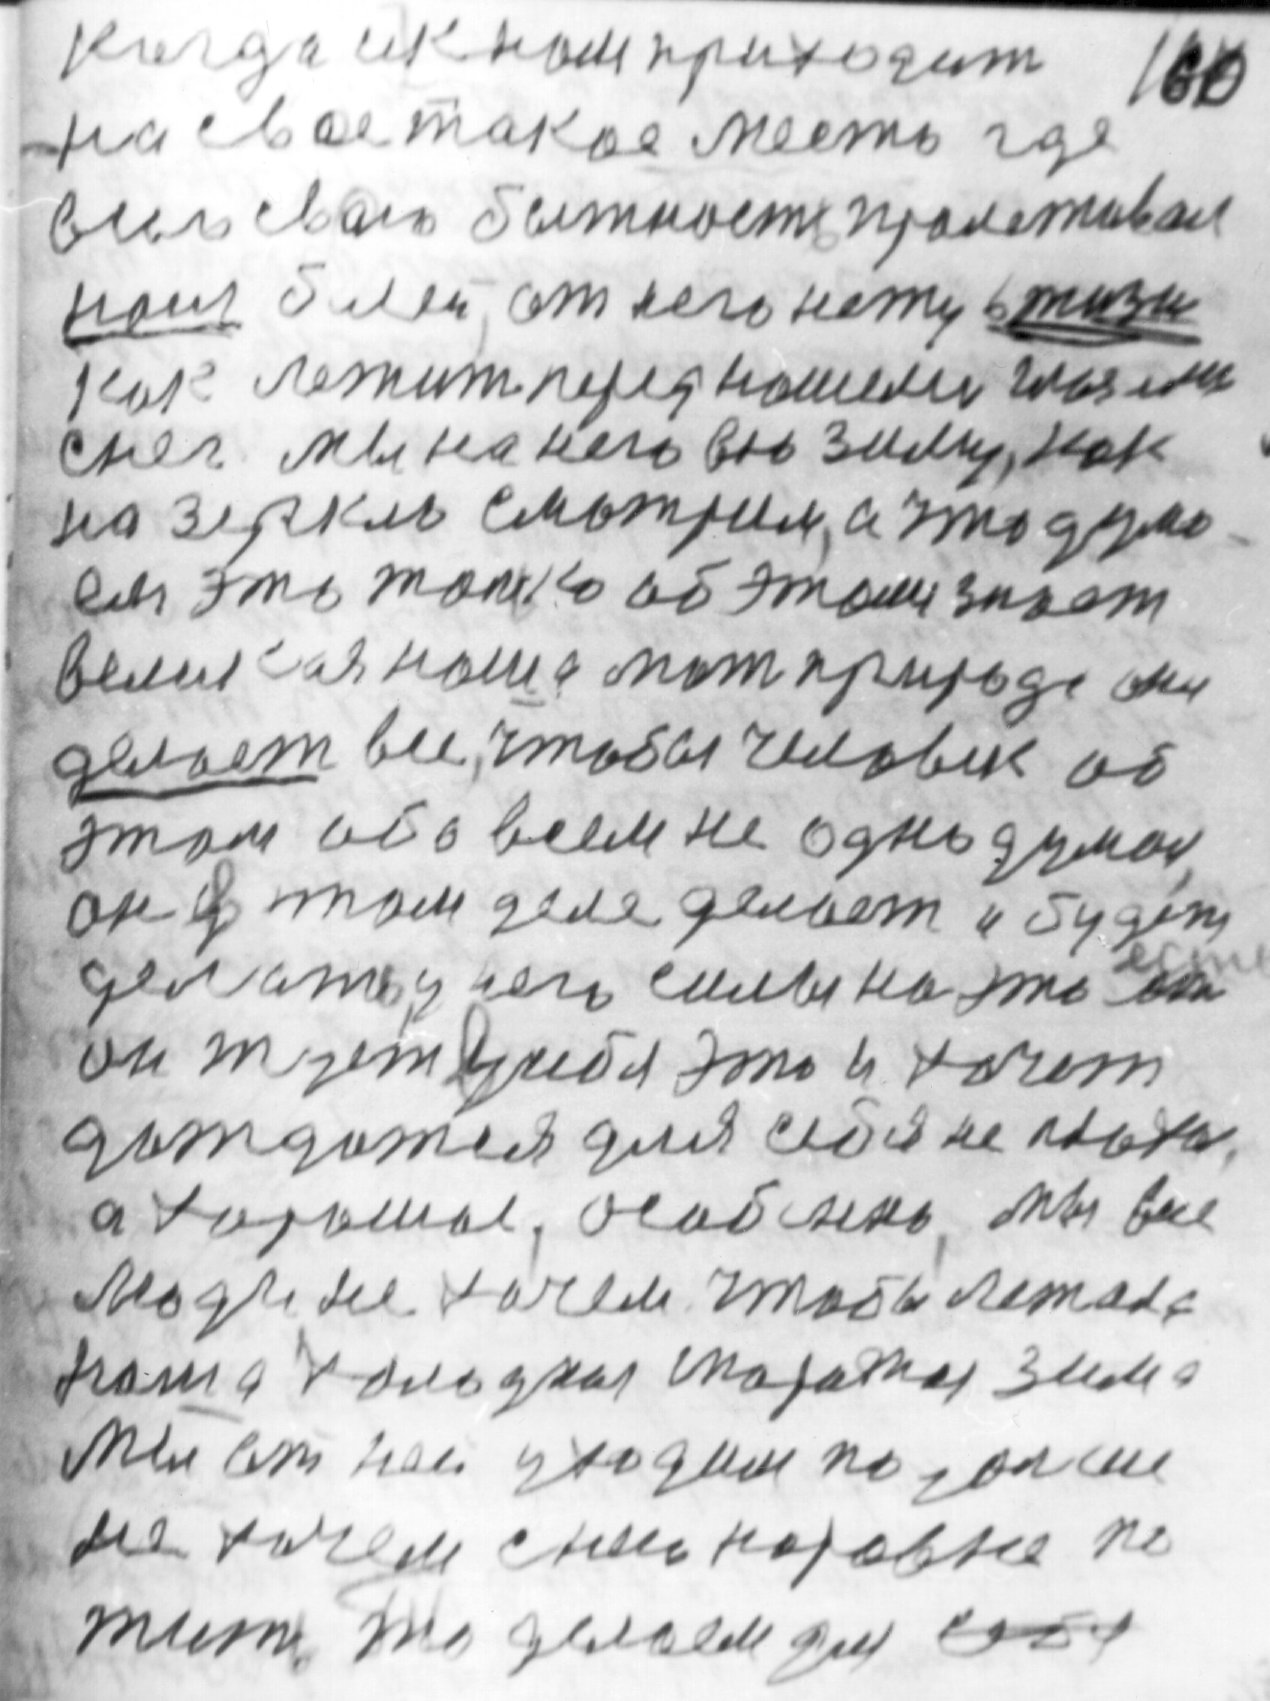 когда ик нам приходит 160
на свое такое место где
всю свою бытность пролеживал
наш белый, от него нету жизни
как лежит перед нашеми глазами
снег мы на него всю зиму, как
на зеркло смотрим, а что дума
ем это толко об этом знает
великая наша мат природа она
делает все, чтобы человек об
этом обо всем не одно думал,
он в том деле делает и будет
делать, у него силы на это есть
он ждет у себя это и хочет
дождатся для себя не плоха,
а хорошое, особено, мы все
люди не хочем чтобы лежала
наша холодная зима
мы от ней уходим подальше
не хочем с нею наравне по
жить, это делаем для себя